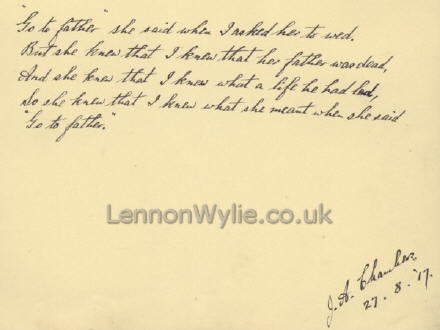 "Go to father" she said when I asked her to wed.
But she knew that I knew that her father was dead,
And she knew that I knew what a life he had led,
So she knew that I knew what she meant when she said
"Go to father."
LennonWylie.co.uk
J. A. Chambers
27. 8. '17.